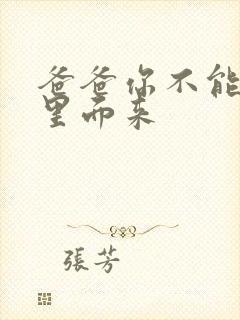 爸爸你不能
里而来
張芳